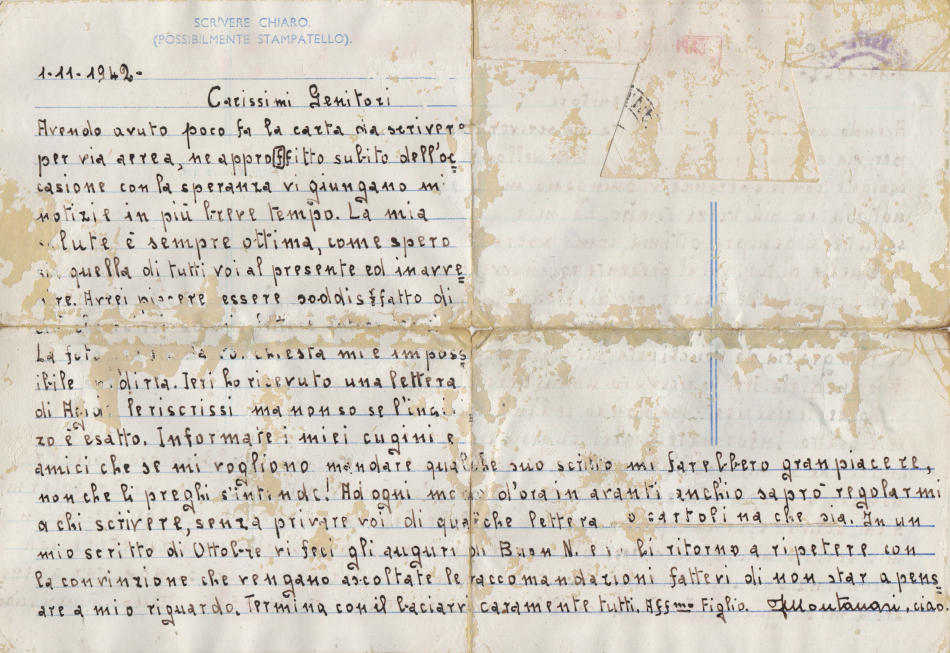 SCRIVERE CHIARO.
(POSSIBILMENTE STAMPATELLO).
1-11-1942-
Carissimi Genitori
Avendo avuto poco fa la carta da scrivere
per via aerea, ne approffitto subito dell'oc
casione con la speranza vi giungano mi
notizie in più breve tempo. La mia
è sempre ottima, come spero
quella di tutti voi al presente ed in avve
Avrei piacere essere soddisfatto di
La chiesta mi è imposs
ibile Ieri ho ricevuto una lettera
di Le riscrissi ma non so se l'indi
zo è esatto. Informate i miei cugini e
amici che se mi vogliono mandare qualche suo scritto mi farebbero gran piacere,
non che li preghi s'intende! Ad ogni modo d'ora in avanti anchio saprò regolarmi
a chi scrivere, senza privare voi di qualche lettera o cartolina che sia. In un
mio scritto di Ottobre vi feci gli auguri di Buon N. e li ritorno a ripetere con
la convinzione che vengano ascoltate le raccomandazioni fattevi di non star a pens
are a mio riguardo. Termina con il baciarv caramente tutti. Aff.mo Figlio. Montanari, ciao.